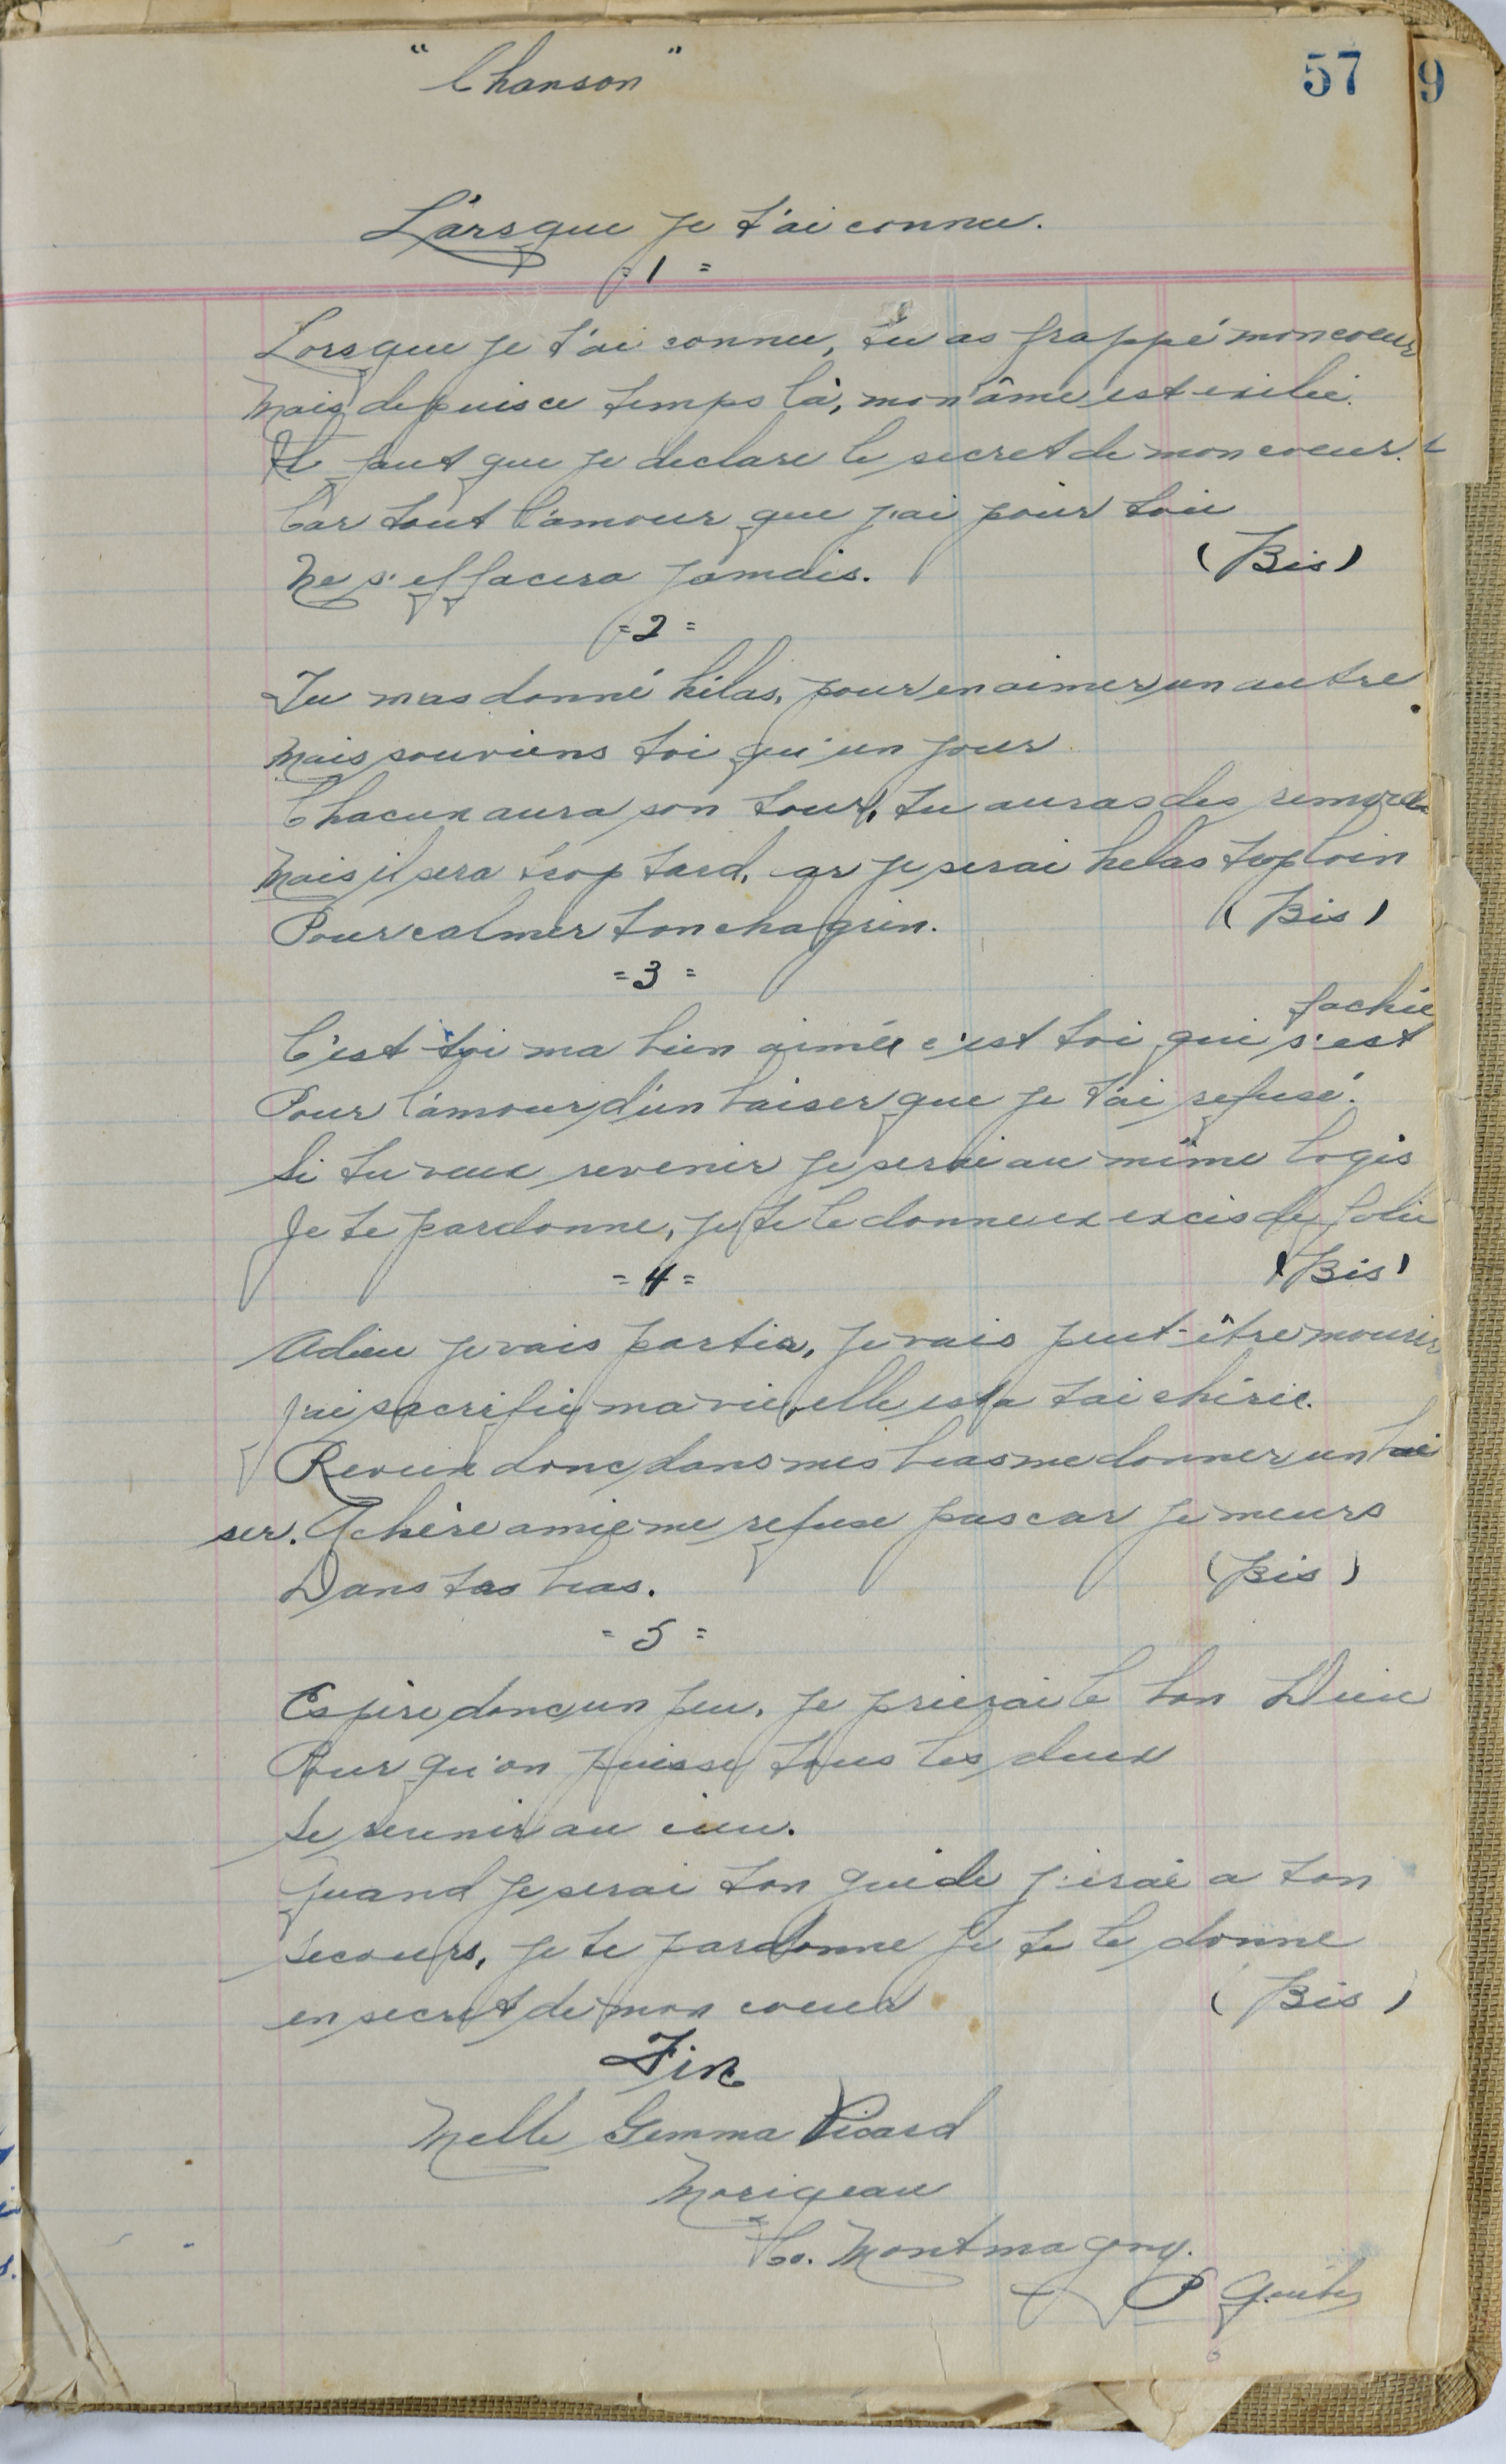 "Chanson"
57
9
Lorsque je t'ai connu.
=1=
Lorsque je t'ai connu, tu as frappé mon coeur
Mais depuis ce temps là, mon âme est exilée.
Il faut que je declare le secret de mon coeur.
Car tout l'amour que j'ai pour toi
Ne s'effacera jamais. (Bis)
=2=
Tu mas donné hélas, pour en aimer un autre
Mais souviens toi qu'un jour
Chacun aura son tour, tu auras des remords
Mais il sera trop tard, car je serai helas trop loin
Pour calmer ton chagrin. (Bis)
=3=
fachée
C'est toi ma bien aimée c'est toi qui s'est
Pour l'amour d'un baiser que je t'ai refusé.
Si tu veux revenir je serai au même logis
Je te pardonne, je te le donne ex exces de folie
=4= (Bis)
Adieu je vais partir, je vais peut-être mourir
J'ai sacrifié ma vie, elle est a toi chérie.
Revien donc dans mes bras me donner un bai
ser. O chère amie me refuse pas car je meurs
Dans tes bras. (Bis)
=5=
Espère donc un peu, je prierai le bon Dieu
Pour qu'on puisse tous les deux
Se reunir au cieu.
Quand je serai ton guide j'irai a ton
secours, je te pardonne je te le donne
en secret de mon coeur (Bis)
Fin
Melle Gemma Picard
Morigeau
Co. Montmagny.
P